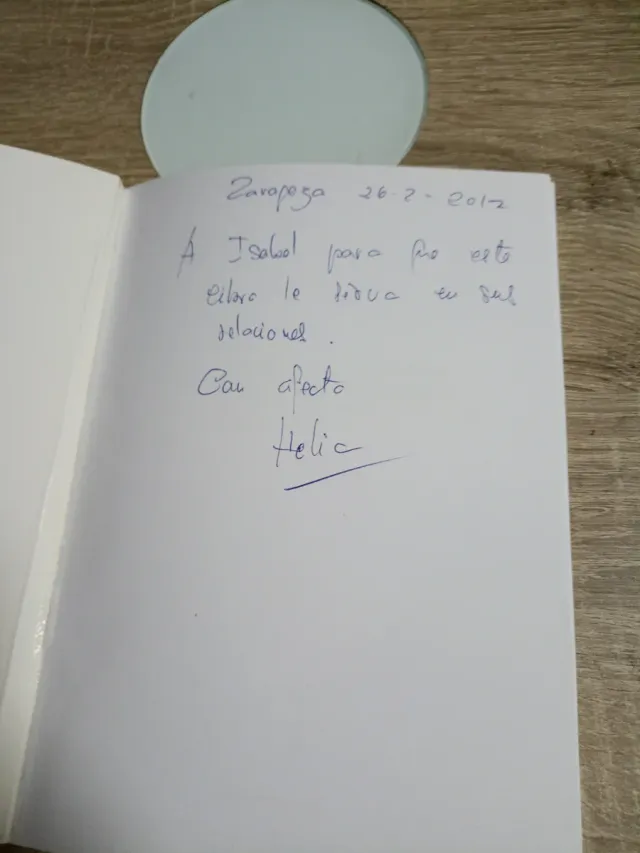 Zaragoza 26-2-2012
A Isabel para que este
libro le sirva en sus
relaciones.
Con afecto
Helia